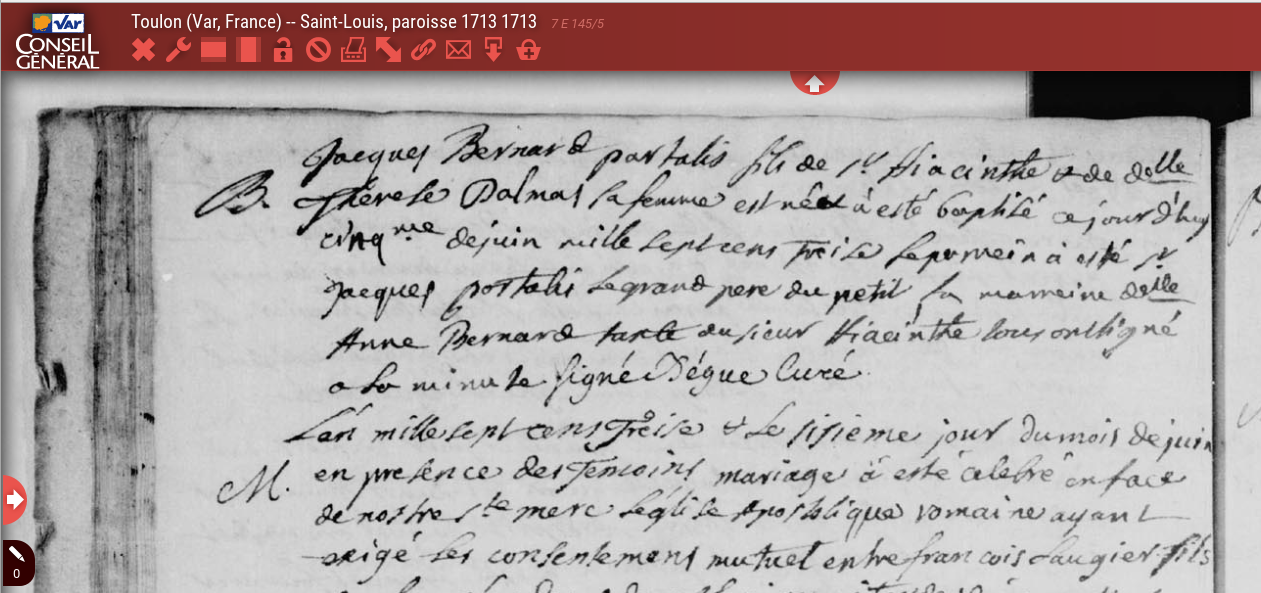 Toulon (Var, France) -- Saint-Louis, paroisse 1713 1713 7 E 145/5
VAR
CONSEIL
GÉNÉRAL
Jacques Bernard portalis fils de sr Hiacinthe & de dlle
B. Thérese Dalmas sa femme est née & à esté baptisé ce jourd'huy
cinqme de juin mille sept cens treise le parrein à esté sr
Jacques portalis le grand pere du petit la marreine dlle
Anne Bernard tante du sieur Hiacinthe tous ont signé
a la minute signé Dégue Curé
L'an mille sept cens treise & le sisieme jour du mois de juin
M. en presence des témoins mariage à esté celebré en face
de nostre ste mere l'église Apostolique romaine ayant
exigé les consentement mutuel entre francois Laugier fils
0